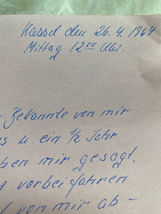 Kassel den 26.4.1969
Mittag 12ºº Uhr.
Bekannte von mir
s u ein 1/2 Jahr
ben mir gesagt,
vorbeifahren
von mir ab-